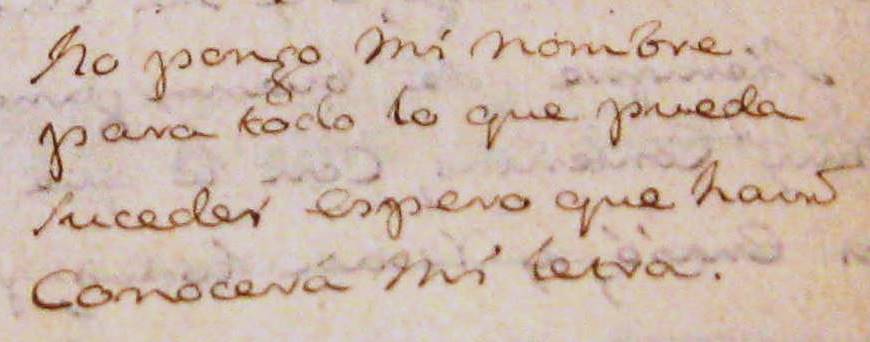 No pongo mi nombre.
para todo lo que pueda
suceder espero que
Conocera mi letra.